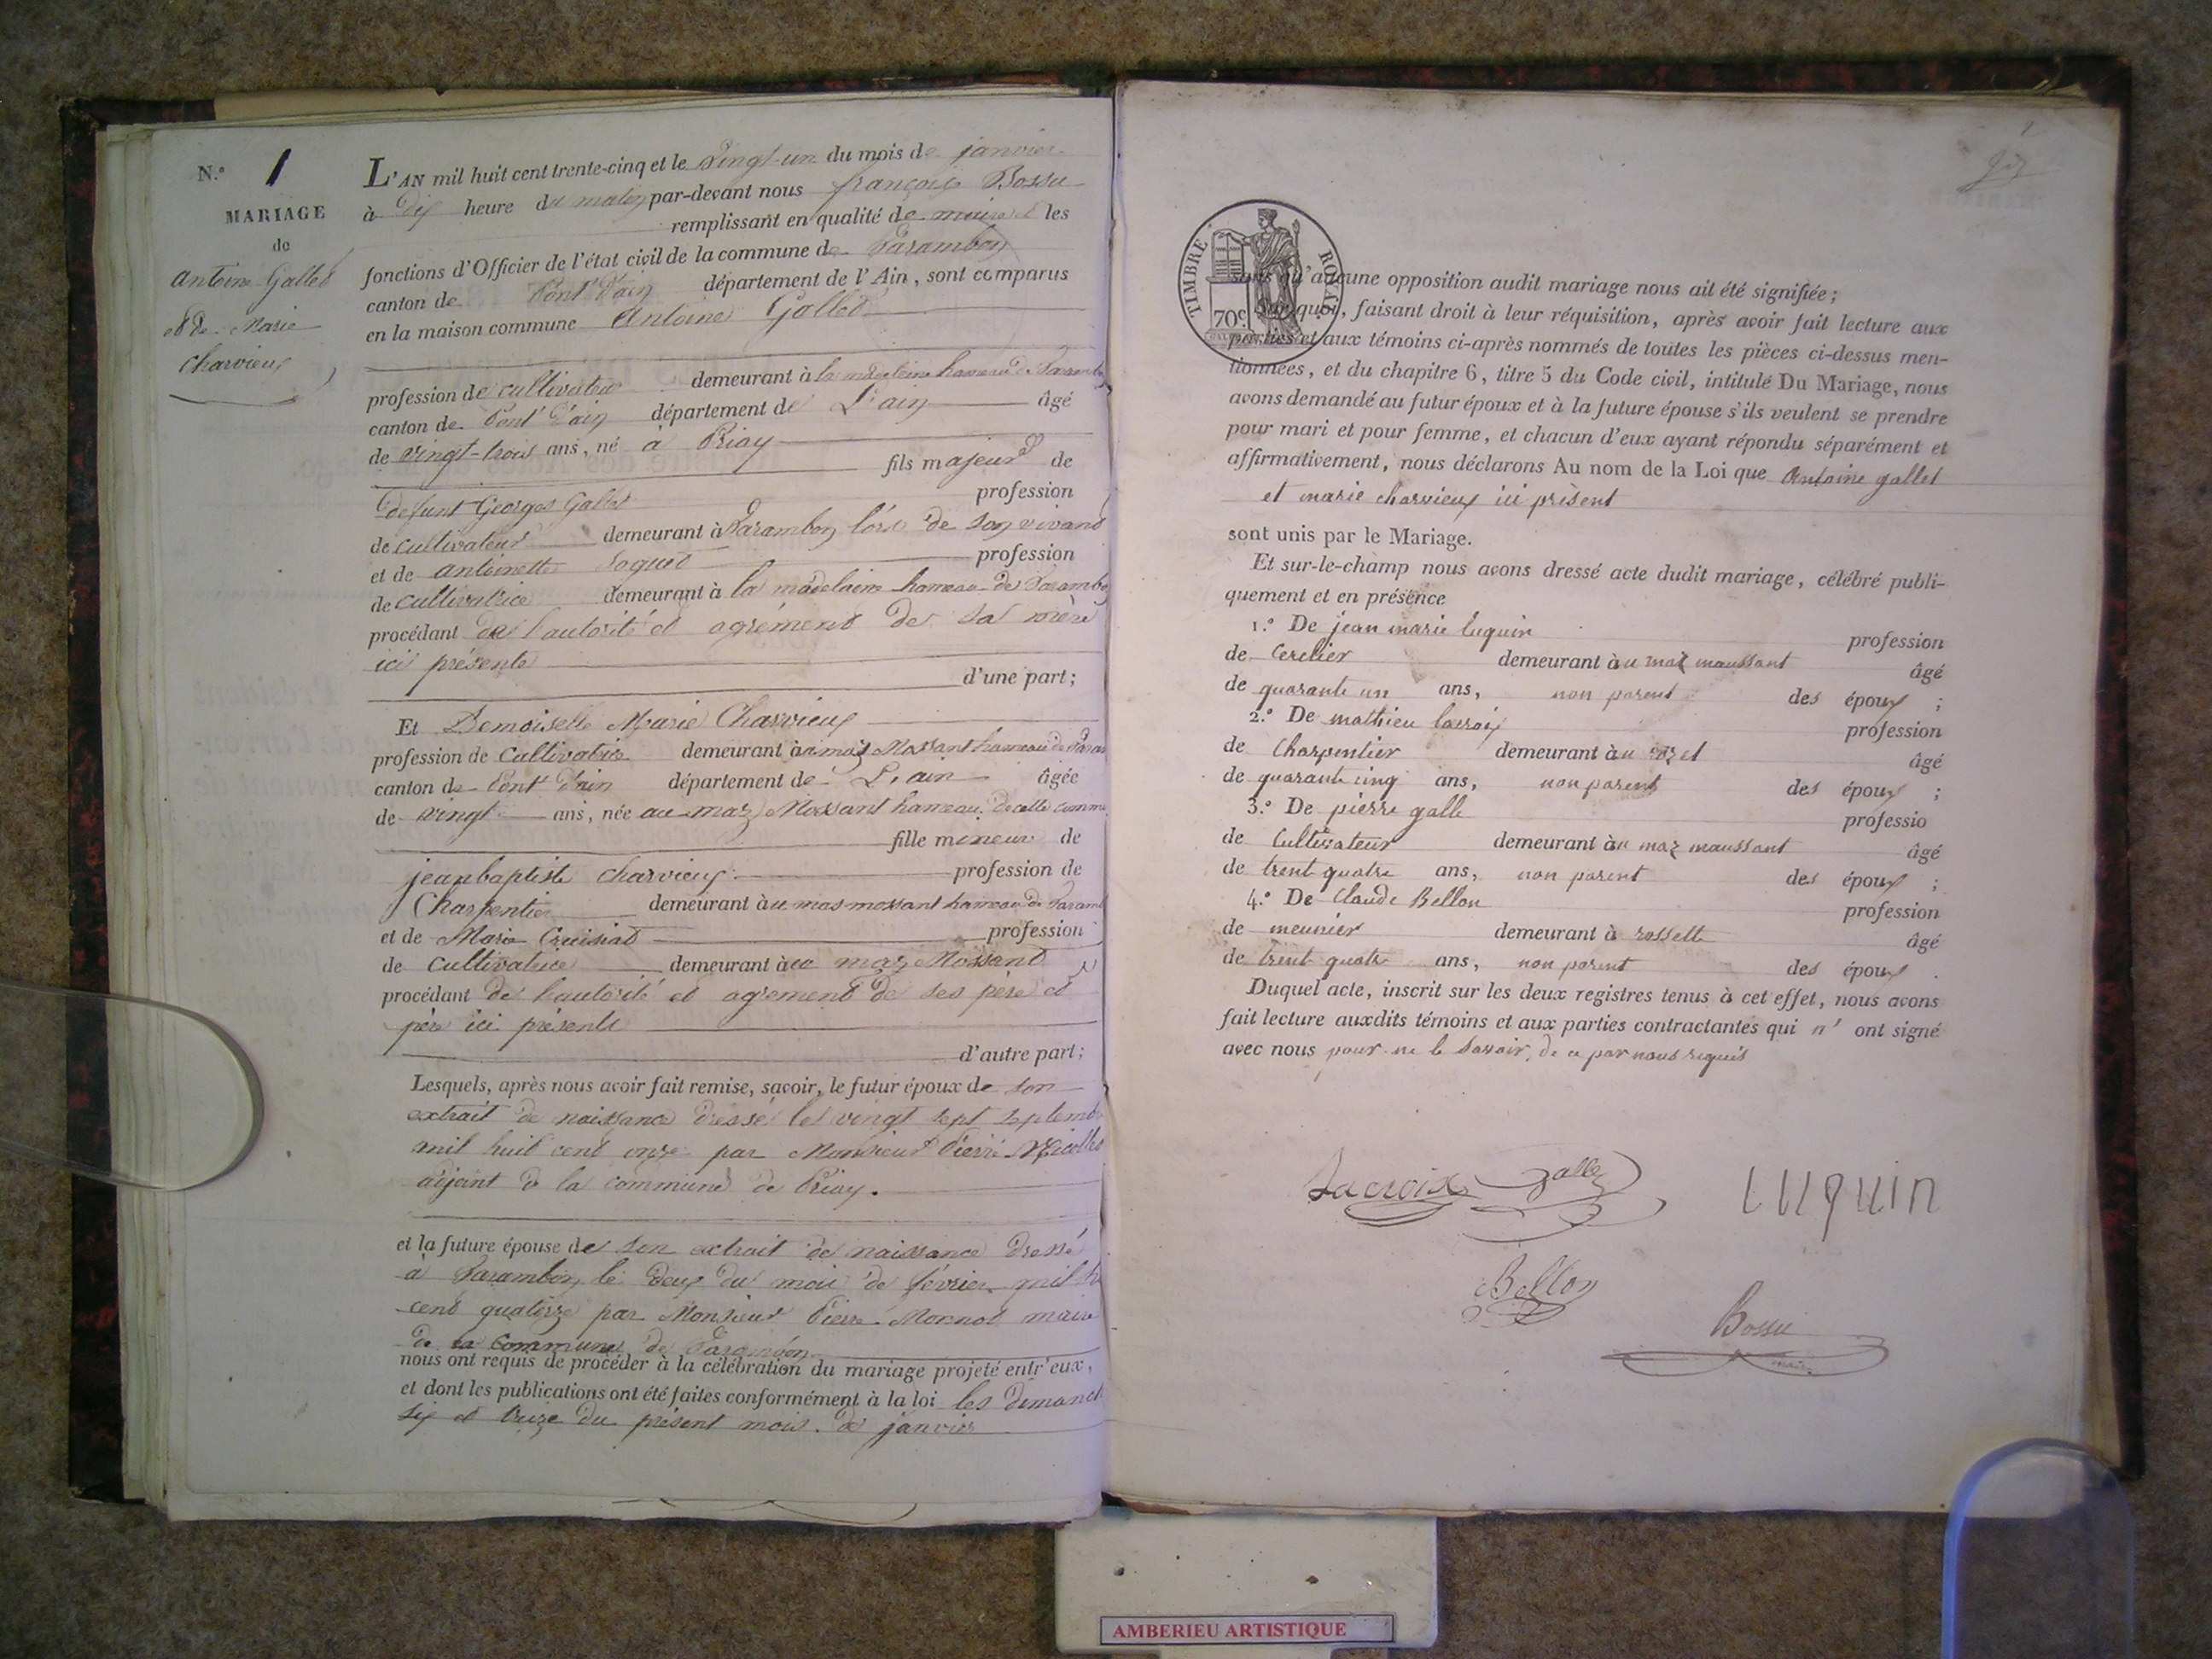 N.º 1
MARIAGE
de
Antoine Gallet
et de Marie
Charvieux
L'AN mil huit cent trente-cinq et le vingt-un du mois de janvier
à dix heure du matin par-devant nous françois Bossu
remplissant en qualité de maire les
fonctions d'Officier de l'état civil de la commune de Varambon
canton de Pont d'ain département de l'Ain, sont comparus
en la maison commune Antoine Gallet
profession de cultivateur demeurant à la madelaine hameau de Varambon
canton de Pont d'ain département de L'ain âgé
de vingt-trois ans, né à Priay
fils majeur de
defunt Georges Gallet profession
de cultivateur demeurant à Varambon lors de son vivant
et de antoinette profession
de cultivatrice demeurant à la madelaine hameau de Varambon
procédant de l'autorité et agrément de sa mère
ici présente
d'une part;
Et Demoiselle Marie Charvieux
profession de Cultivatrice demeurant au maz Mossant hameau de Varam
canton de Pont d'ain département de L'ain âgée
de vingt ans, née au maz Mossant hameau de cette commu
fille mineure de
jean baptiste charvieux profession de
Charpentier demeurant au mas mossant hameau de Varamb
et de Marie Cruisiat profession
de Cultivatrice demeurant au maz Mossant
procédant de l'autorité et agrement de ses père et
père ici présents
d'autre part;
Lesquels, après nous avoir fait remise, savoir, le futur époux de son
extrait de naissance dressé le vingt sept septemb
mil huit cent onze par Monsieur Pierre
adjoint à la commune de Priay.
et la future épouse de son extrait de naissance dressé
à Varambon le deux du mois de février mil h
cent quatorze par Monsieur Pierre Monnot maire
de la Commune de Varambon
nous ont requis de procéder à la célébration du mariage projeté entr'eux,
et dont les publications ont été faites conformément à la loi les dimanch
six et treize du présent mois de janvier
TIMBRE ROYAL
70c
sans qu'aucune opposition audit mariage nous ait été signifiée;
Sur quoi, faisant droit à leur réquisition, après avoir fait lecture aux
parties et aux témoins ci-après nommés de toutes les pièces ci-dessus men-
tionnées, et du chapitre 6, titre 5 du Code civil, intitulé Du Mariage, nous
avons demandé au futur époux et à la future épouse s'ils veulent se prendre
pour mari et pour femme, et chacun d'eux ayant répondu séparément et
affirmativement, nous déclarons Au nom de la Loi que Antoine gallet
et marie charvieux ici prèsent
sont unis par le Mariage.
Et sur-le-champ nous avons dressé acte dudit mariage, célébré publi-
quement et en présence
1.º De jean marie luquin profession
de Cerclier demeurant àu maz maussant âgé
de quarante un ans, non parent des époux ;
2.º De mathieu lacroix profession
de Charpentier demeurant àu âgé
de quarante cinq ans, non parent des époux ;
3.º De pierre galle professio
de Cultivateur demeurant àu maz maussant âgé
de trent quatre ans, non parent des époux ;
4.º De Claude Bellon profession
de meunier demeurant à rossette âgé
de trent quatre ans, non parent des époux .
Duquel acte, inscrit sur les deux registres tenus à cet effet, nous avons
fait lecture auxdits témoins et aux parties contractantes qui n' ont signé
avec nous pour ne le savoir, de ce par nous requis
Lacroix Galle Luquin
Bellon
Bossu
maire
AMBERIEU ARTISTIQUE